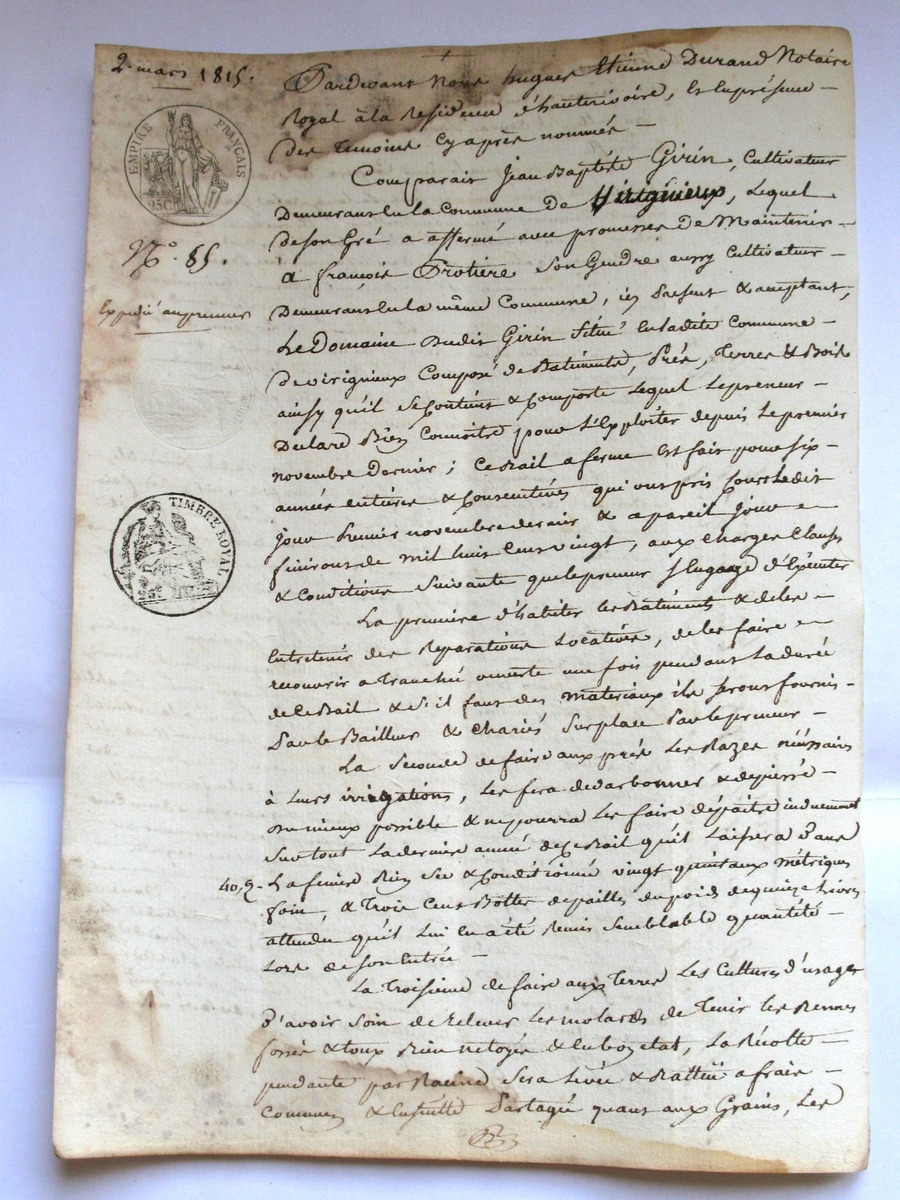 2. mars 1815.
EMPIRE FRANÇAIS
25C
N.° 85.
Expédié au preneur
TIMBRE ROYAL
25c
Pardevant Nous hugues Etienne Durand Notaire
Royal à la Residence d'hauterivoire, Et En présence
des Temoins Cy après nommés
Comparait Jean Baptiste Girin, Cultivateur
Demeurant En la Commune de Virignieux, Lequel
de son Gré a affermé avec promesse de Maintenir
à françois Protiere son Gendre aussy Cultivateur
Demeurant En la même Commune, ici présent & acceptant,
Le Domaine dudit Girin Situé En ladite Commune
de virignieux Composé de Batiments, Prés, Terres & Bois
ainsy qu'il Se Contient & Comporte Lequel Le preneur
Declare Bien Connoitre pour L'Exploiter depuis Le premier
novembre Dernier; Ce Bail a ferme Est fait pour six
années entières & Consecutives qui ont pris Cours Ledit
jour premier novembre dernier & a pareil jour
finiront de mil huit Cent vingt, aux charges Clauses
& Conditions Suivante que le preneur s'Engage d'Exécuter
La première d'habiter les Batiments & de les
Entretenir des Reparations Locatives, de les faire
recouvrir a Tranché ouverte une fois pendant La durée
de Ce Bail & S'il faut des materiaux ils seront fournis
par le Bailleur & Chariés Sur place par le preneur
La Seconde de faire aux prés Les Razes néssaires
à Leurs irrigations, Les fera dedarbonner & depierré
du mieux possible & ne pourra Les faire dépaitre induement
Surtout La dernière année de Ce Bail qu'il Laissera Dans
40,2 - La feniere Bien Sec & Conditionné vingt quintaux métriques
foin, & Trois Cent Bottes de pailles du poids de quinze Livres
attendu qu'il Lui En a été Remis Semblable quantité
Lors de son Entrée
La Troisieme de faire aux Terres Les Cultures d'usages
D'avoir Soin de relever Les molards de Tenir les
fossés & tous Bien netoyés & En bon etat, La Récolte
pendante par Racine Sera Levée & Battue a frais
Commun & Ensuitte Partagée quant aux Grains, Les